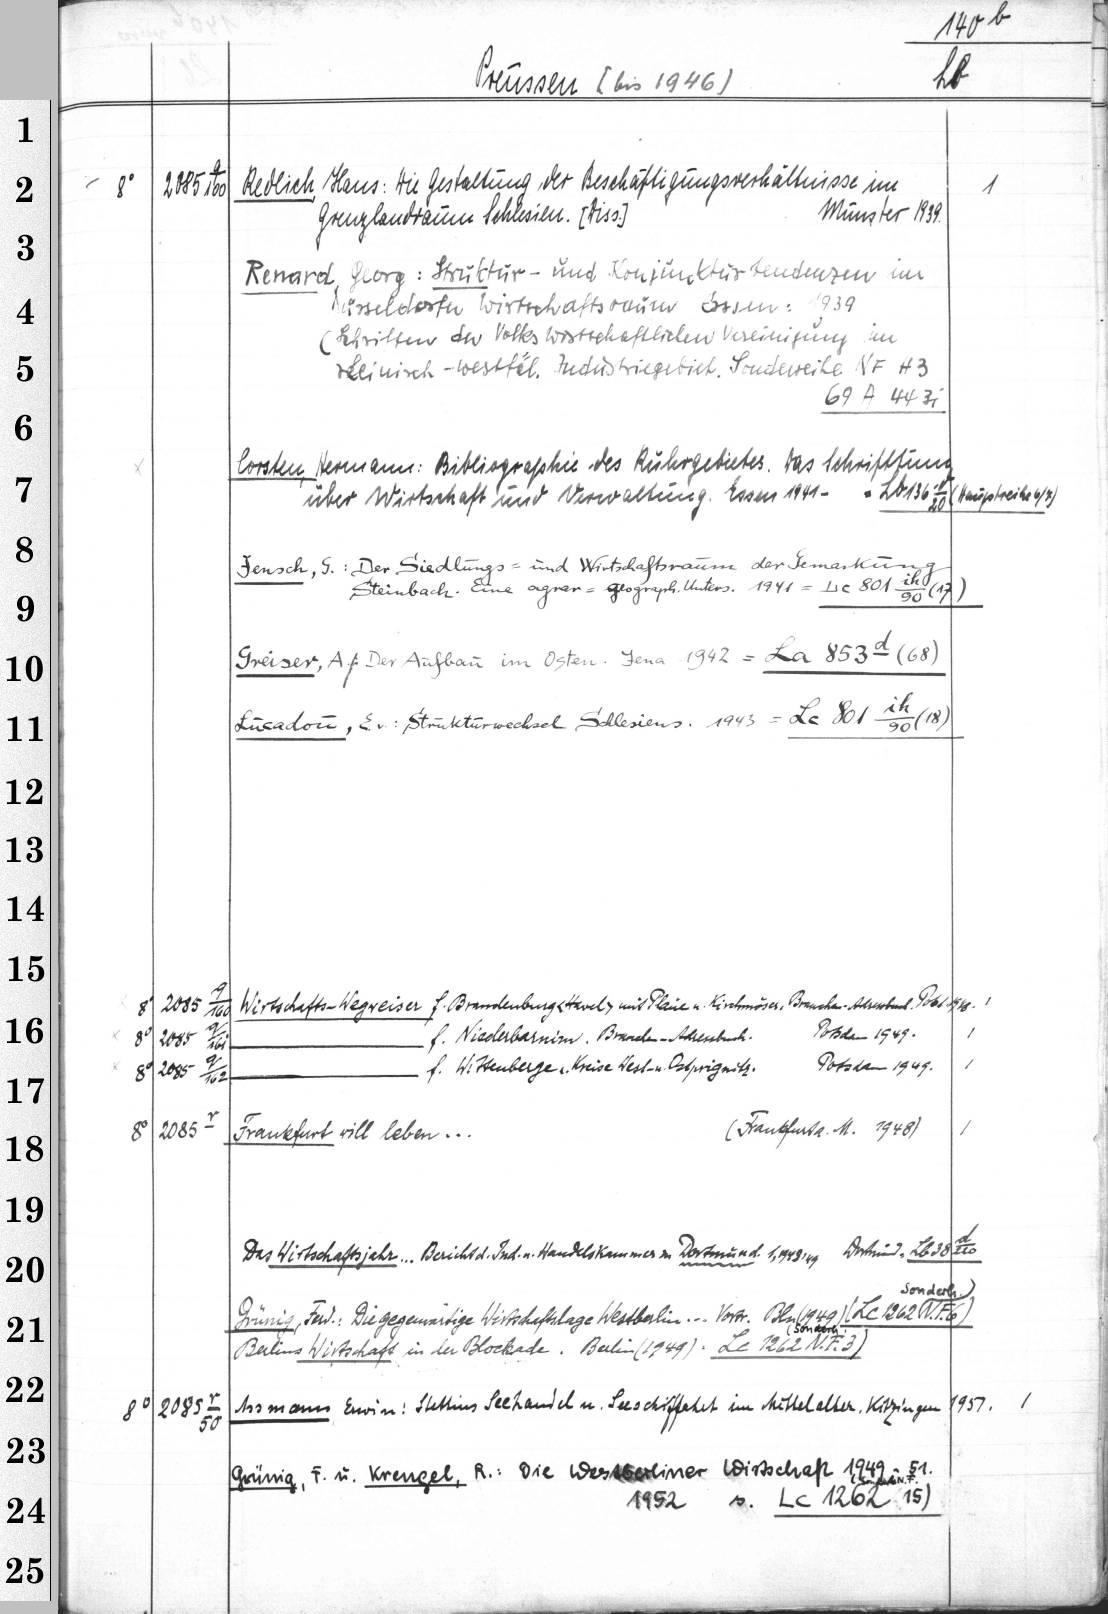 140 b
Lb
Preussen [bis 1946]
1
2
3
4
5
6
7
8
9
10
11
12
13
14
15
16
17
18
19
20
21
22
23
24
25
8° 2085 q/160 Redlich, Hans: Die Gestaltung der Beschäftigungsverhältnisse im 1
Grenzlandraum Schlesien. [Diss.] Münster 1939.
Renard, Georg: Struktur- und Konjunkturtendenzen im
Düsseldorfer Wirtschaftsraum Essen: 1939
(Schriften der Volkswirtschaftlichen Vereinigung im
rheinisch-westfäl. Industriegebiet. Sonderreihe NF H 3
69 A 443i
Corsten, Hermann: Bibliographie des Ruhrgebietes. Das Schrifttum
über Wirtschaft und Verwaltung. Essen 1941- = Lb 136 /20 (Hauptreihe 6/7)
Jensch, G.: Der Siedlungs= und Wirtschaftsraum der Gemarkung
Steinbach. Eine agrar=geograph. Unters. 1941 = Lc 801 ih/90 (17)
Greiser, A.: Der Aufbau im Osten. Jena 1942 = La 853 d (68)
Lucadou, E. v.: Strukturwechsel Schlesiens. 1943 = Lc 801 ih/90 (18)
8° 2085 q/160 Wirtschafts-Wegweiser f. Brandenburg <Havel> mit Plaue u. Kirchmöser. Branchen-Adressbuch. 1
8° 2085 q/161 f. Niederbarnim. Branchen-Adressbuch. Potsdam 1949. 1
8° 2085 q/162 f. Wittenberge u. Kreise West- u. Ostprignitz. Potsdam 1949. 1
8° 2085 r Frankfurt will leben... (Frankfurt a. M. 1948) 1
Das Wirtschaftsjahr... Bericht d. Ind.- u. Handelskammer zu Dortmund. 1,1948/49 Dortmund = Lb 38 d/210
Sonderh.)
Grünig, Ferd.: Die gegenwärtige Wirtschaftslage Westberlin... Vortr. Bln (1949) (Lc 1262 N.F. 6)
(Sonderh.
Berlins Wirtschaft in der Blockade. Berlin (1949). Lc 1262 N.F. 3)
8° 2085 r/50 Assmann Erwin: Stettins Seehandel u. Seeschiffahrt im Mittelalter. Kitzingen 1951. 1
Grünig, F. u. Krengel, R.: Die Westberliner Wirtschaft 1949-51.
1952 s. Lc 1262 15)